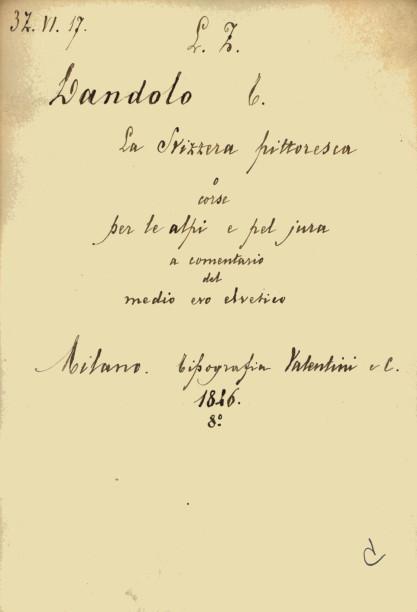 37. VI. 17.
L. Z.
Dandolo T.
La Svizzera pittoresca
o
corse
per le alpi e pel jura
a comentario
del
medio evo elvetico
Milano. Tipografia Valentini e C.
1846.
8º